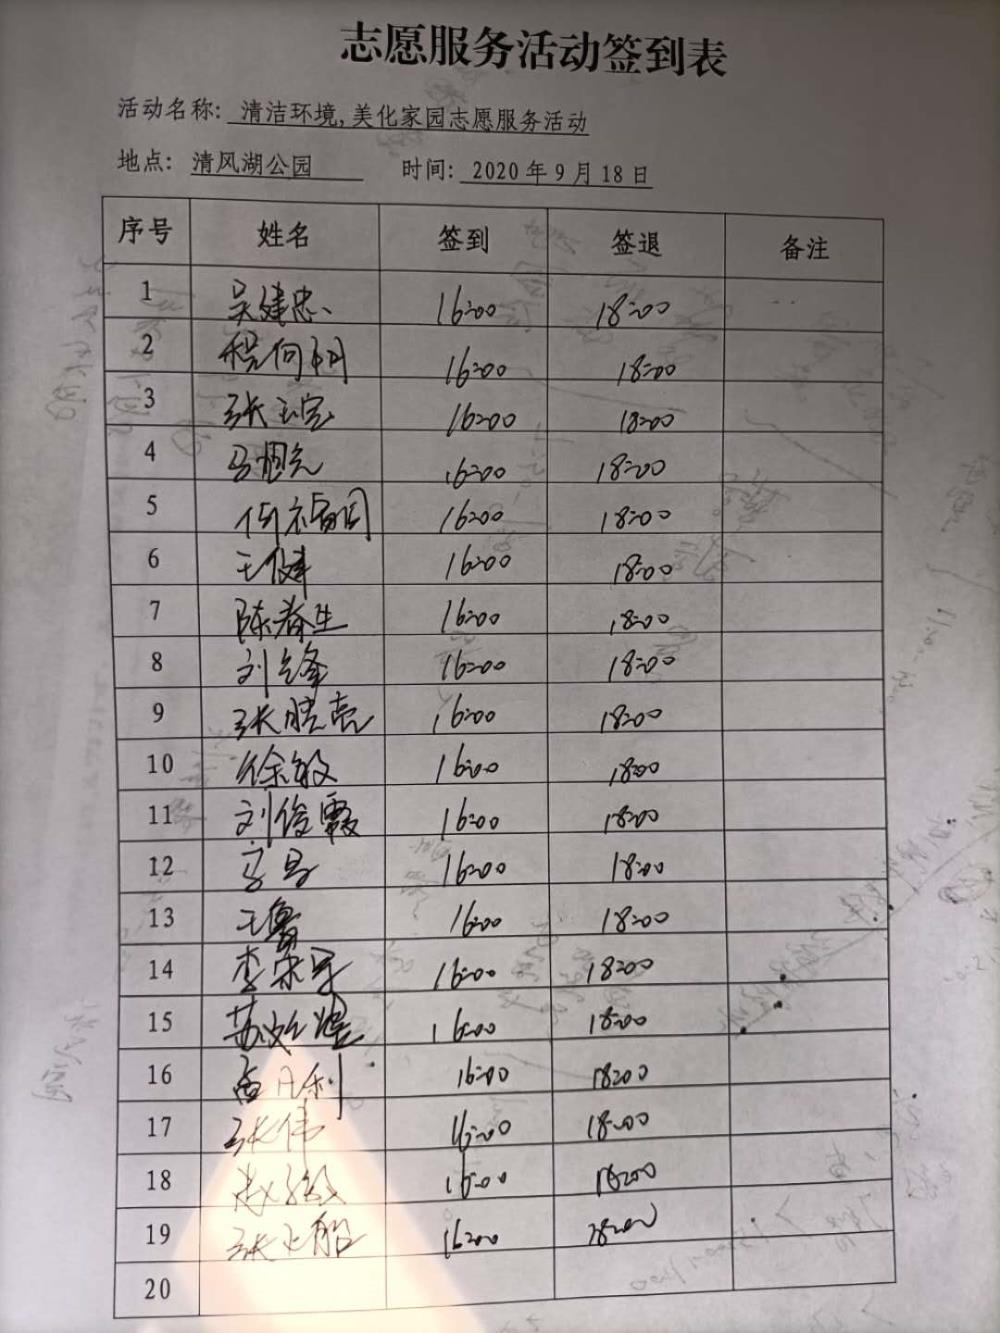 志愿服务活动签到表
活动名称: 清洁环境,美化家园志愿服务活动
地点: 清风湖公园 时间: 2020 年 9 月 18 日
序号 姓名 签到 签退 备注
1 吴建忠 16:00 18:00
2 程何明 16:00 18:00
3 张玉宝 16:00 18:00
4 16:00 18:00
5 16:00 18:00
6 王健 16:00 18:00
7 陈春生 16:00 18:00
8 刘锋 16:00 18:00
9 张胜亮 16:00 18:00
10 徐敏 16:00 18:00
11 刘俊霞 16:00 18:00
12 16:00 18:00
13 王鲁 16:00 18:00
14 李荣军 16:00 18:00
15 苏 16:00 18:00
16 孟凡利 16:00 18:00
17 张伟 16:00 18:00
18 赵 16:00 18:00
19 张 船 16:00 18:00
20